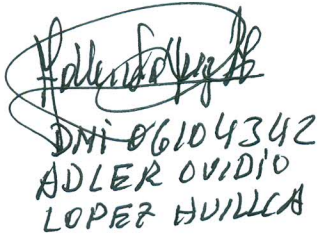 DNI 06104342
ADLER OVIDIO
LOPEZ HUILLCA